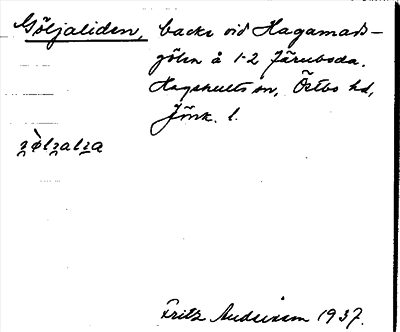 Göljaliden, backe vid Hagamads-
gölen å 1-2 Järnboda.
Hagshults sn, Östbo hd,
Jönk. l.
Fritz Andersson 1937.